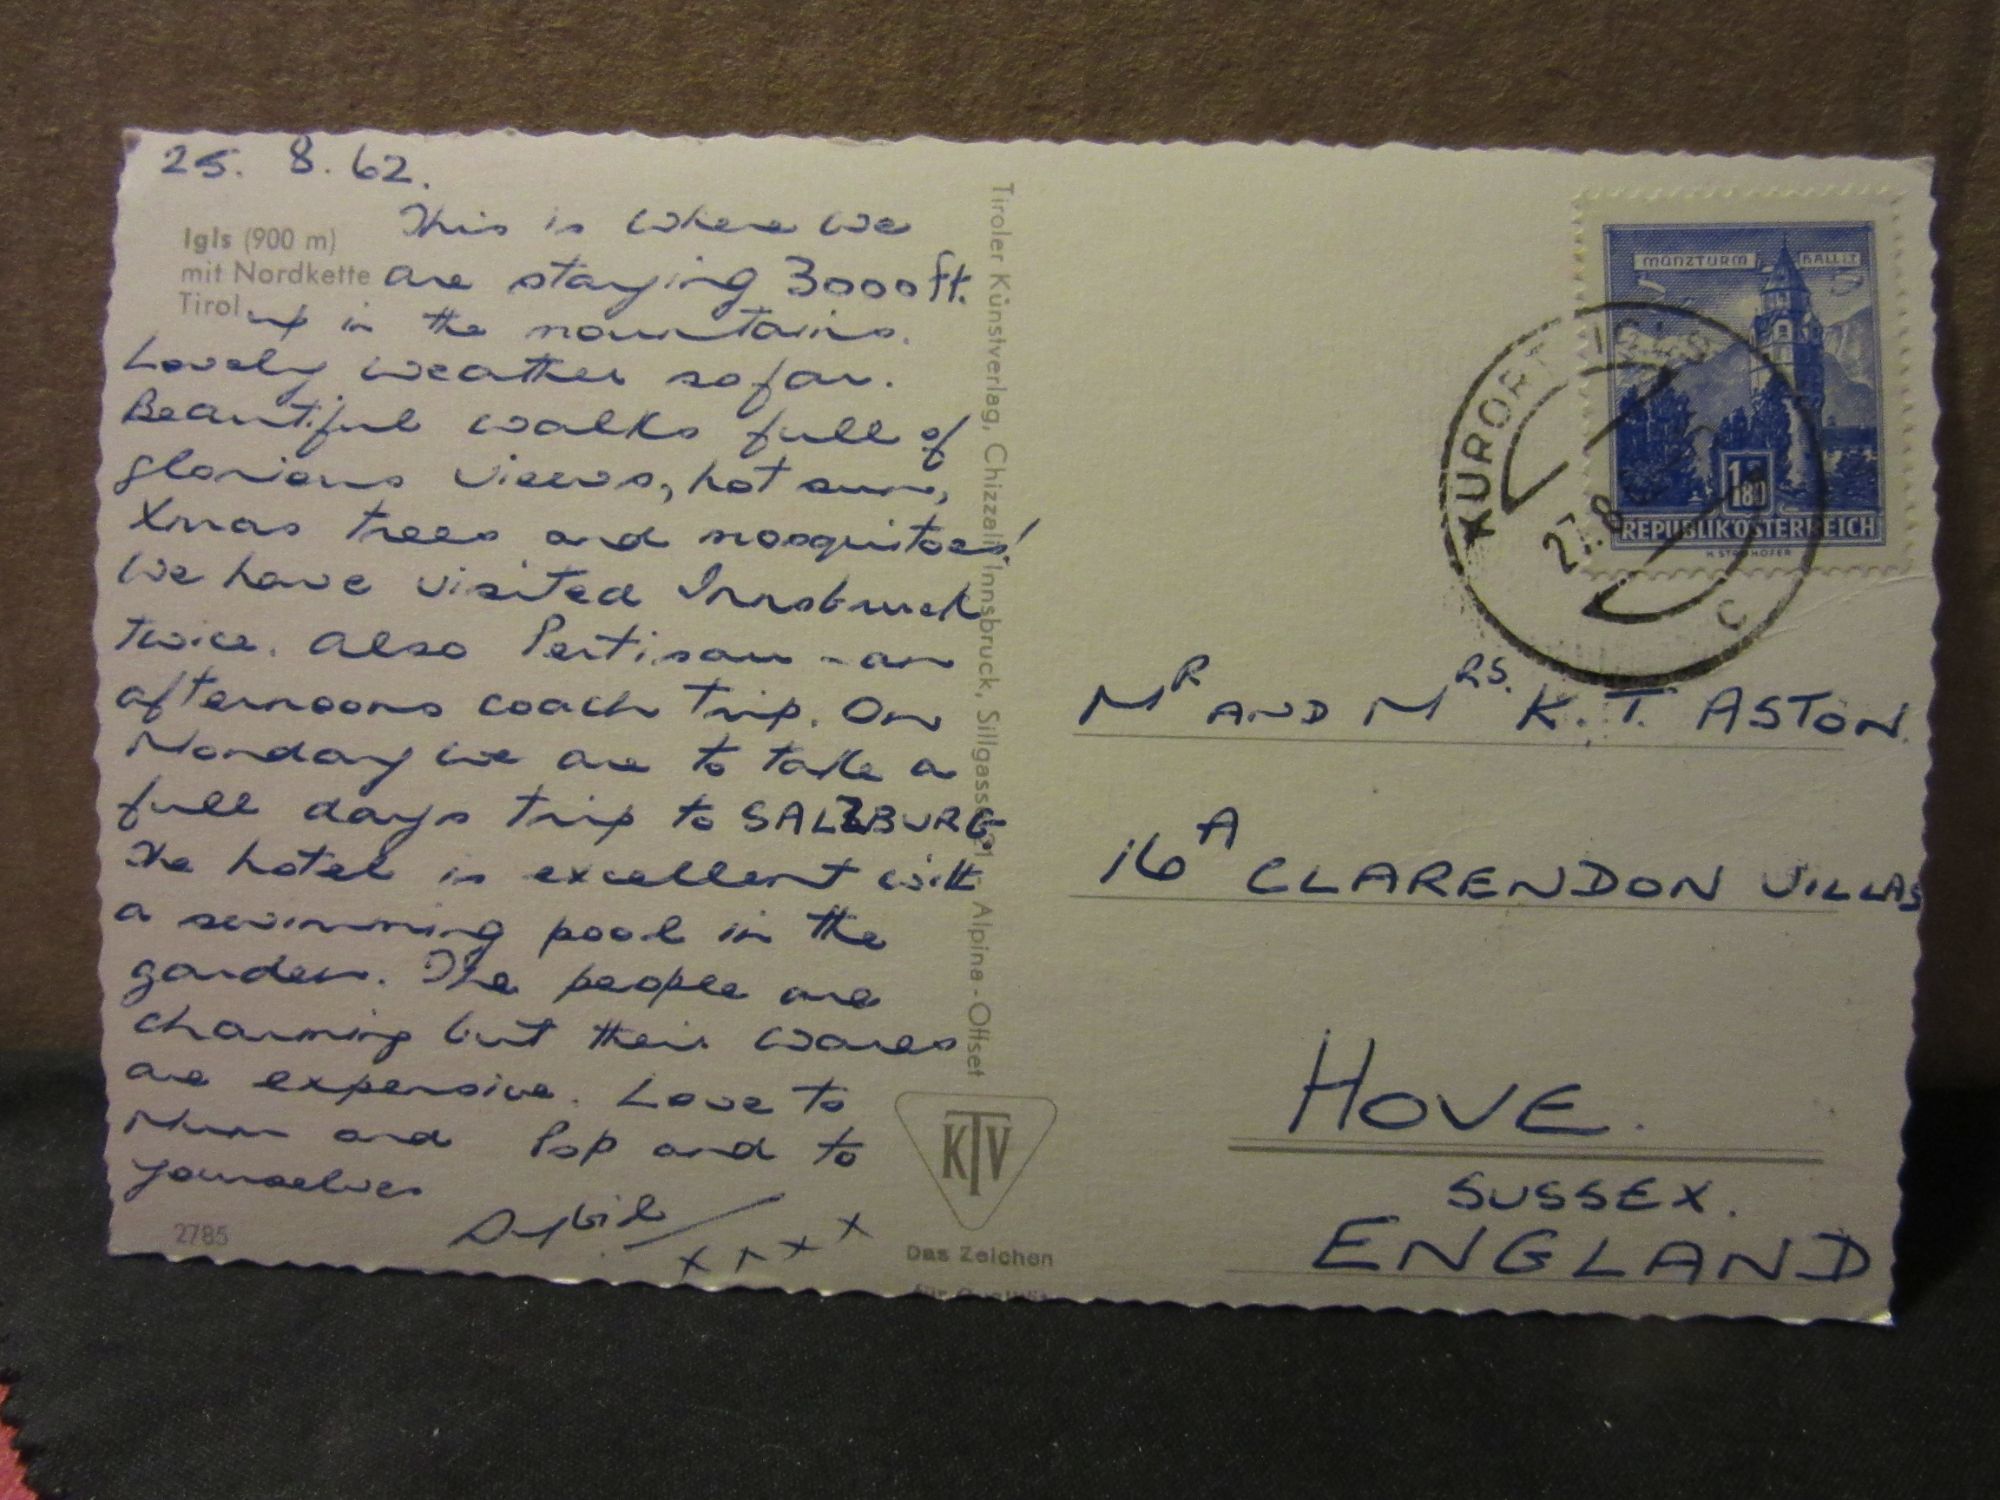 25. 8. 62.
Igls (900 m)
mit Nordkette
Tirol
This is where we
are staying 3000ft.
up in the mountains.
Lovely weather so far.
Beautiful walks full of
glorious views, hot sun,
Xmas trees and mosquitoes!
We have visited Innsbruck
twice. Also Pertisau - an
afternoons coach trip. On
Monday we are to take a
full days trip to SALZBURG
The hotel is excellent with
a swimming pool in the
garden. The people are
charming but their wares
are expensive. Love to
Mum and Pop and to
yourselves
x x x x
2785
Tiroler Kunstverlag, Chizzali, Innsbruck, Sillgasse 21 - Alpina-Offset
KTV
Das Zeichen
für Qualität
MÜNZTURM HALL i.T.
1.80
REPUBLIK ÖSTERREICH
KURORT IGLS
27. 8.
C
MR AND MRS. K. T. ASTON.
16A CLARENDON VILLAS
HOVE.
SUSSEX.
ENGLAND